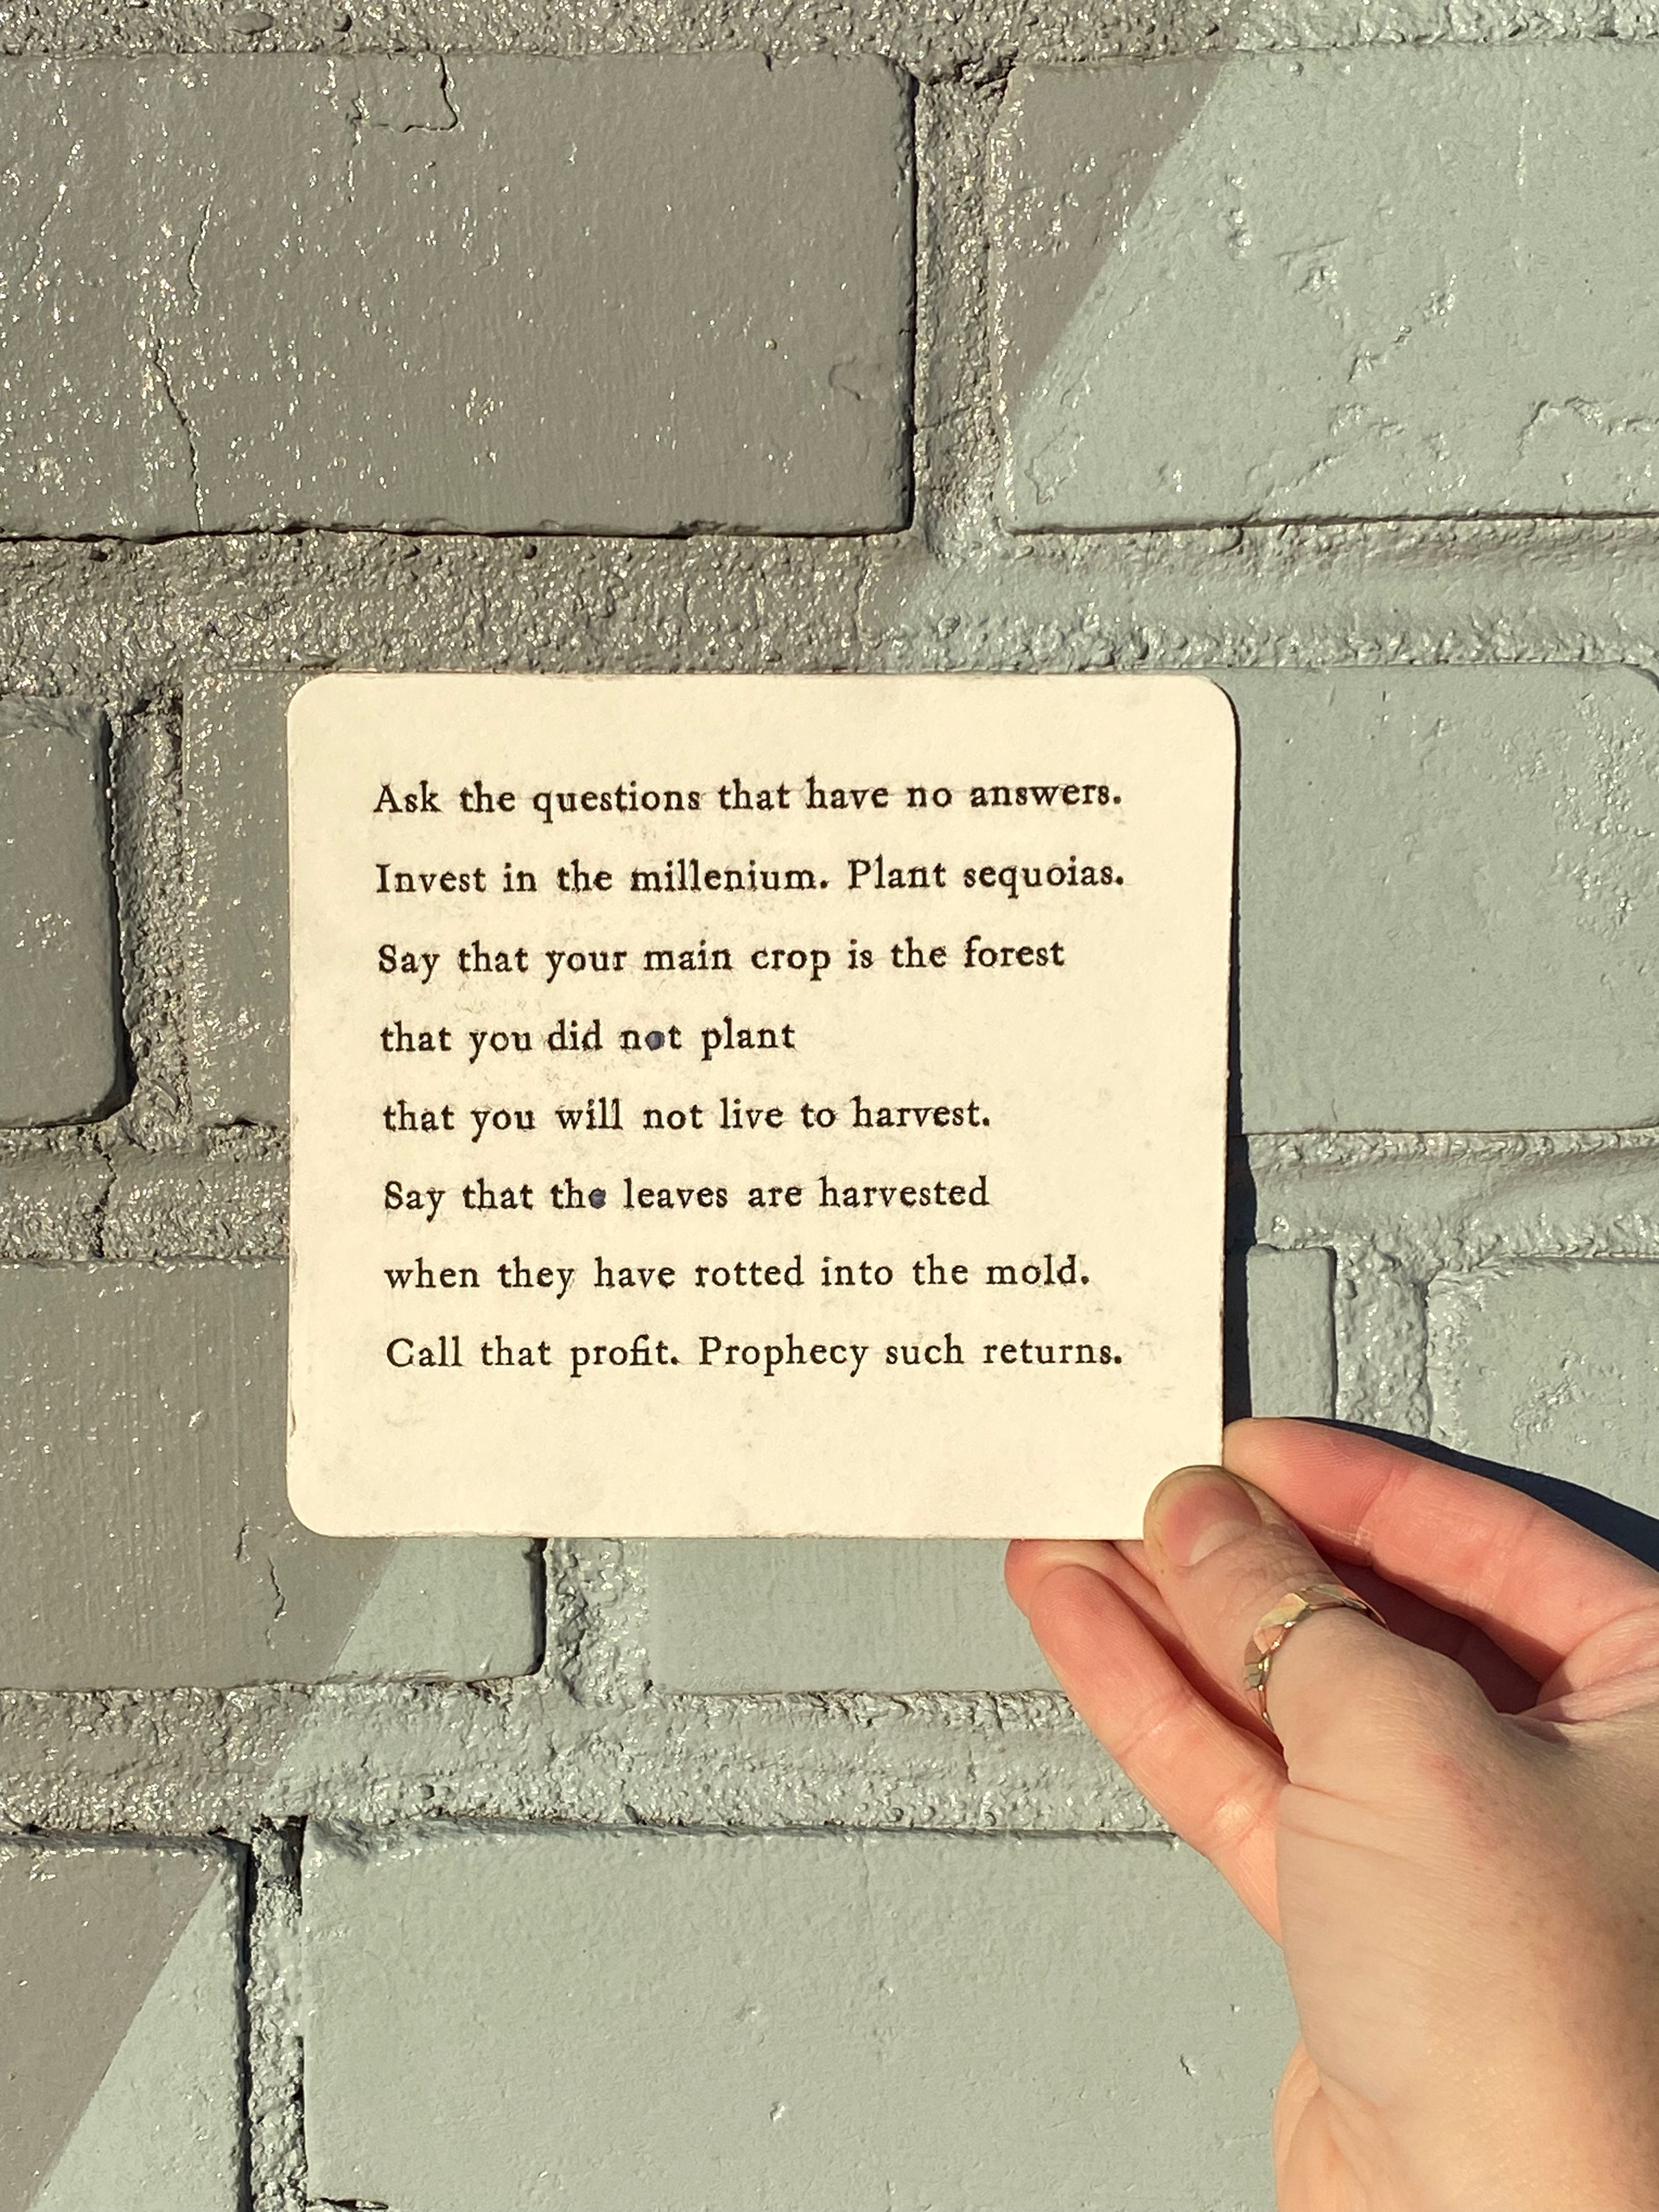 Ask the questions that have no answers.
Invest in the millenium. Plant sequoias.
Say that your main crop is the forest
that you did not plant
that you will not live to harvest.
Say that the leaves are harvested
when they have rotted into the mold.
Call that profit. Prophecy such returns.